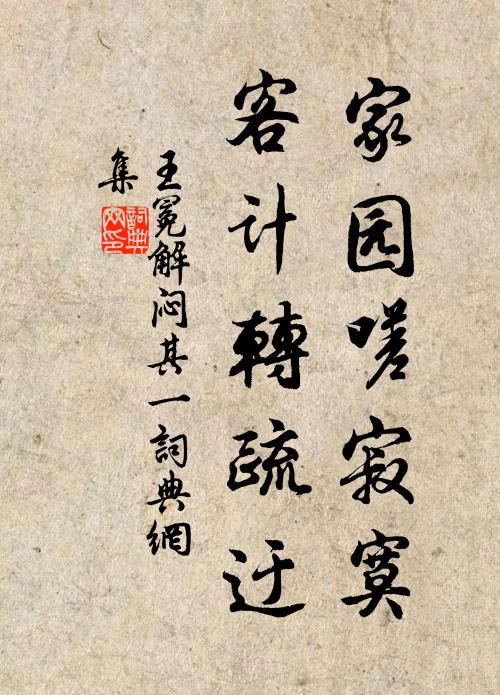 家园嗟寂寞
客计轉疏迂
王冕解闷其一詞典網
集
詞典
网印